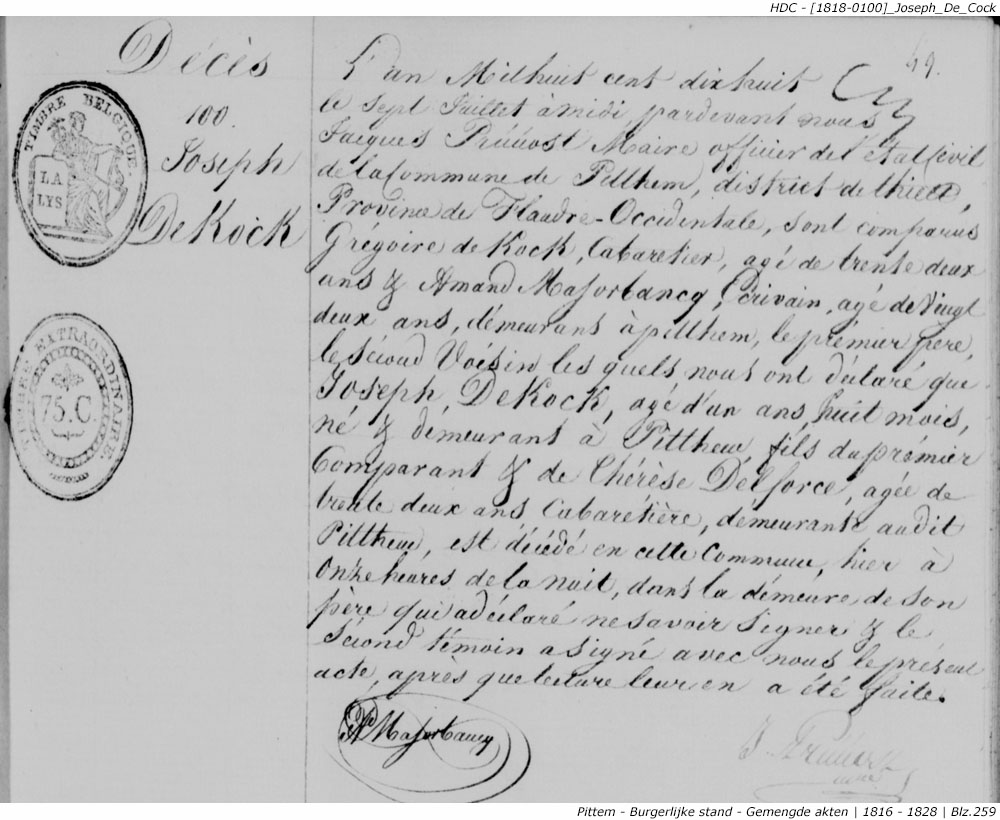 HDC - [1818-0100]_Joseph_De_Cock
49.
Décès
100.
Joseph
DeKock
TIMBRE BELGIQUE.
LA
LYS
TIMBRE EXTRAORDINAIRE
75.C.
L'an Milhuit cent dixhuit
le Sept Juillet à midi pardevant nous
Jacques Prúúost Maire officier del'état Civil
de la Commune de Pitthem, district de thielt,
Province de Flandre-Occidentale, sont comparus
Grégoire de Kock, Cabaretier, agé de trente deux
ans & Amand Masorbancq, Ecrivain, agé de Vingt
deux ans, démeurans à pitthem, le prémier pere,
le Sécond Voisin les quels nous ont déclaré que
Joseph DeKock, agé d'un ans huit mois,
né & démeurant à Pitthem, fils du prémier
Comparant & de Thérèse Delforce, agée de
trente deux ans Cabarétière, demeurante audit
Pitthem, est décédé en cette Commune, hier à
Onze heures de la nuit, dans la démeure de son
père qui a déclaré ne savoir Signer & le
Sécond témoin a signé avec nous le présent
acte, après que lecture leur en a été faite.
A Masorbancq
J. Pruuost
Pittem - Burgerlijke stand - Gemengde akten | 1816 - 1828 | Blz.259